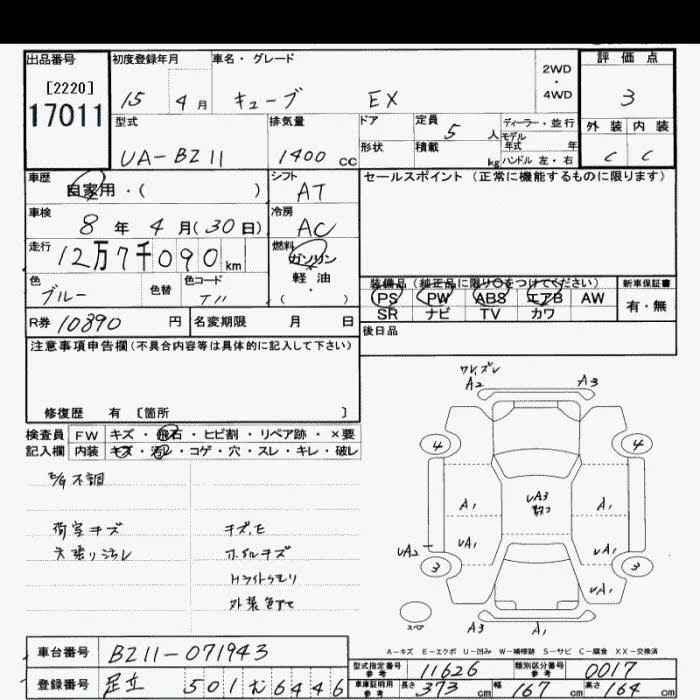 出品番号 初度登録年月 車名・グレード 2WD ・ 4WD 評価点
[2220]
17011
15 4月 キューブ EX 3
型式 排気量 ドア 定員 5人 ディーラー・並行 外装 内装
モデル年式 年
UA-BZ11 1400cc 形状 積載 kg ハンドル 左・右 C C
車歴 自家用・( ) シフト AT セールスポイント(正常に機能するものに限ります)
車検 8年 4月(30日) 冷房 AC
走行 12万7千090km 燃料 ガソリン 軽油 ( )
色 ブルー 色替 色コード
装備品(純正品に限り○をつけてください) 新車保証書
PS PW ABS エアB AW 有・無
SR ナビ TV カワ
R券 10890円 名変期限 月 日
後日品
注意事項申告欄(不具合内容等は具体的に記入して下さい)
修復歴 有 [箇所 ]
検査員 FW キズ・飛石・ヒビ割・リペア跡・×要
記入欄 内装 キズ・汚レ・コゲ・穴・スレ・キレ・破レ
不調
荷室キズ
天張り汚レ
ホイルキズ
Hライトクモリ
外装色アセ
A2 A3
4 4
A1 UA3 A1
UA2 UA1 UA1
3 3
UA1
スペア A3 A1
A-キズ E-エクボ U-凹み W-補修跡 S-サビ C-腐食 XX-交換済
車台番号 BZ11-071943
登録番号 足立 501 む 6446
型式指定番号 参考 11626 類別区分番号 参考 0017
車庫証明用 参考 長さ 373cm 幅 167cm 高さ 164cm